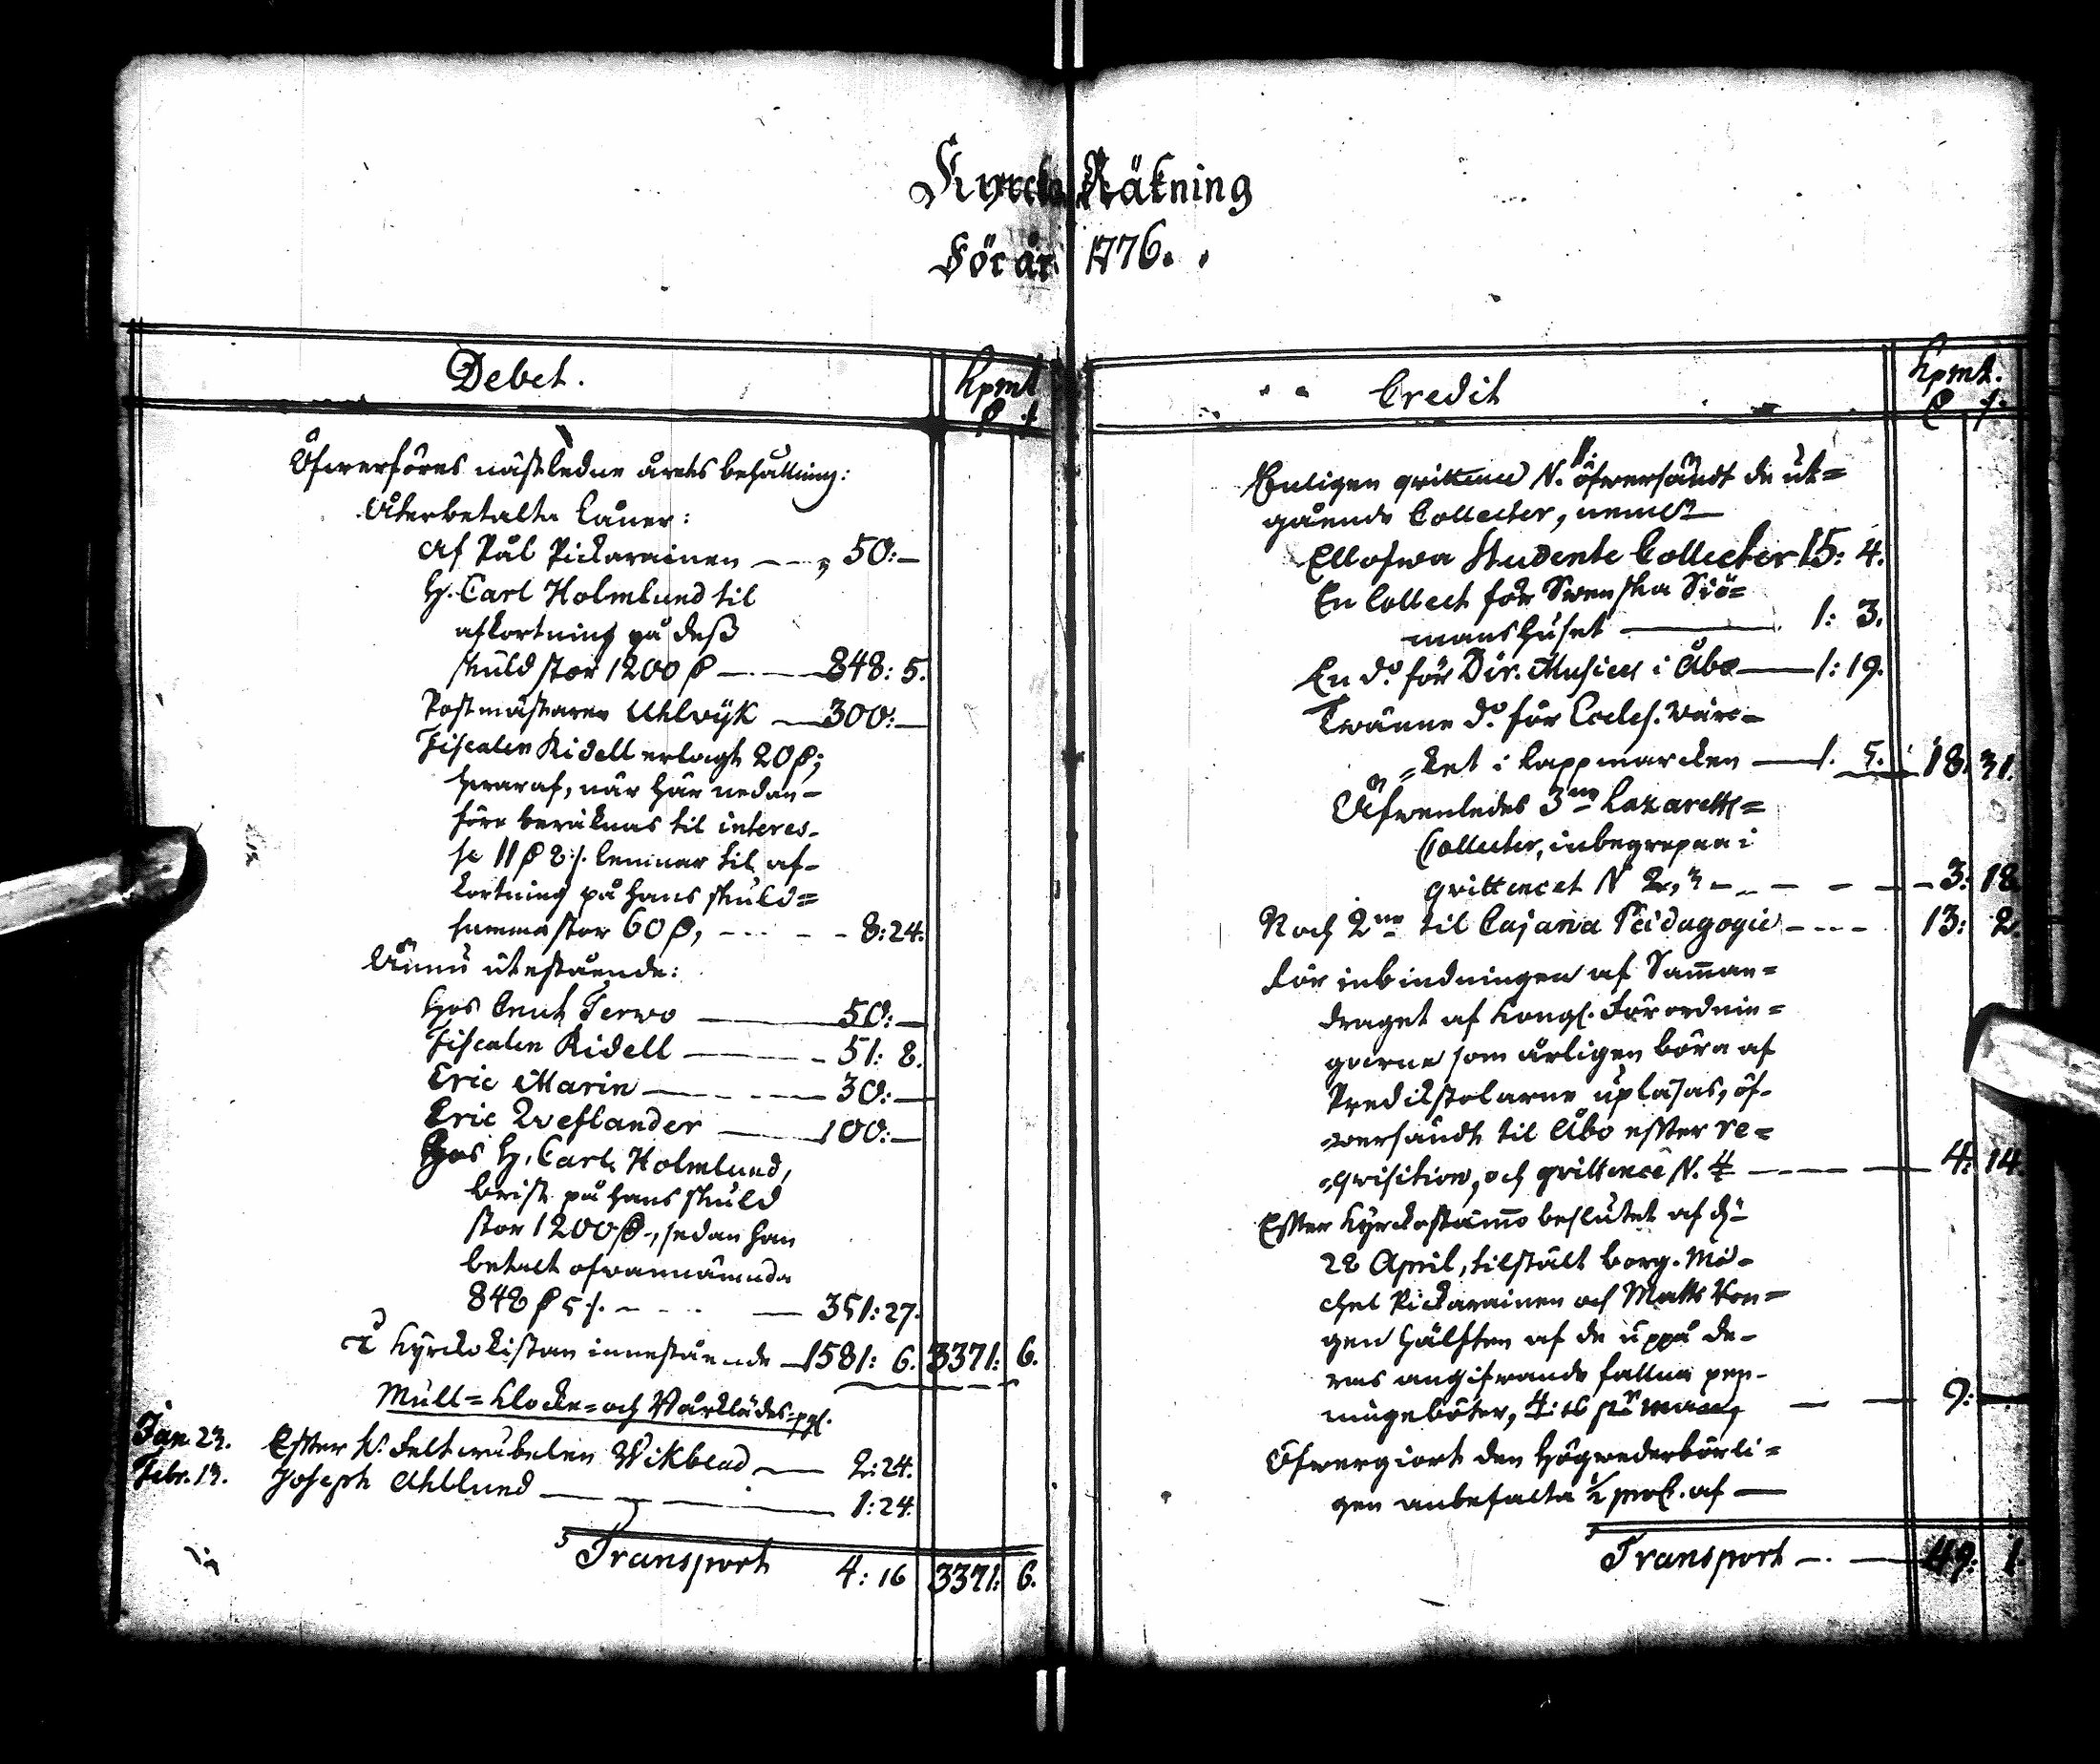 Kyrcko Räkning
För år 1776.
Debet.
Kpmt
Öfwerföres nästledne årets behållning:
Återbetalta Låner:
Af Pål Pickarainen 50:—
H. Carl Holmlund til
afkortning på desß
skuld stor 1200 848: 5.
Postmästaren Uhlwÿk 300:—
Fiscalen Ridell erlagt 20
hwaraf, när här nedan-
före beräknas til interes-
se 11 8 lemnar til af-
kortning på hans skuld=
summa stor 60 8: 24.
Ännu utestående:
Hos Cnut Terwo 50:—
Fiscalen Ridell 51: 8.
Eric Marin 30:—
Eric Weflander 100:—
Hos H. Carl Holmlund,
brist på hans skuld
stor 1200, sedan han
betalt ofwannämnda
848 5 351: 27.
I Kyrckokistan innestående 1581: 6. 3371: 6.
Mull= Klocke= och Bårklädes=pgr.
Jan. 23. Efter Wikblad 2: 24.
Febr. 13. Joseph Ahlund 1: 24.
Transport 4: 16 3371: 6.
Credit
Kpmt.
Enligen qvittence N. 1. öfwersändt de ut=
gående Collecter,
Ellofwa Studente Collecter 15: 4.
En Collect för Swenska Siö=
manshuset 1: 3.
En do för Dir. Musices i Åbo 1: 19.
Twänne do för Eccles. wärc=
=ket i Lappmarcken 1. 5. 18. 31.
Äfwenledes 3ne Lazaretts=
Collecter, inbegrepen i
qvittencet N 2, 3: 18.
Noch 2ne til Cajana Pædagogie 13: 2.
För inbindningen af Samman=
draget af Kongl. Förordnin=
garne som årligen böra af
Predikstolarne upläsas, öf-
=wersändt til Åbo efter re=
=qvisition, och qvittence N. 4 4: 14.
Efter Kyrckostämmo beslutet af d.
28 April, tilstält borg. Mi-
chel Pickarainen och Matts Kon=
gen hälften af de uppå de-
ras angifwande fallna pen-
ningeböter, 4: 16 9:—
Öfwergiort den Högwederbörli=
gen anbefalta ½ proC. af —
Transport 49: 1.